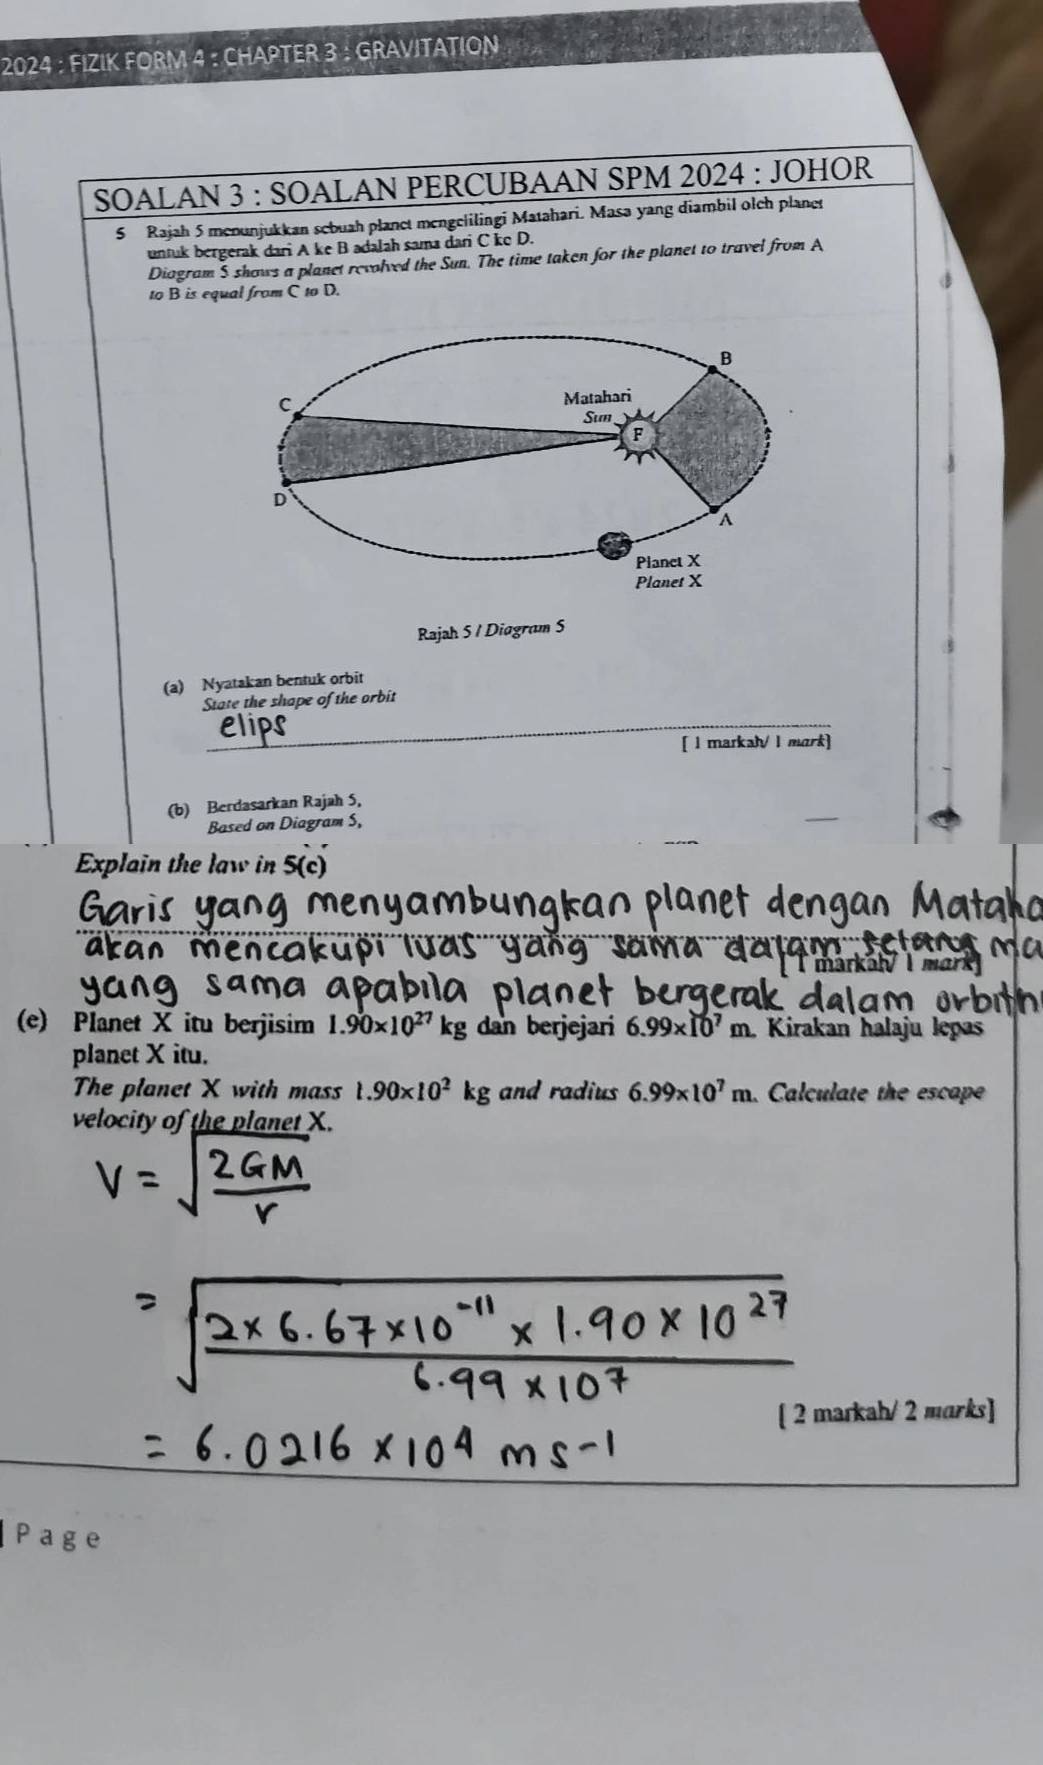 2024 : FIZIK FORM 4 : CHAPTER 3 : GRAVITATION
SOALAN 3 : SOALAN PERCUBAAN SPM 2024 : JOHOR
5 Rajah 5 menunjukkan sebuah planet mengelilingi Matahari. Masa yang diambil oleh planet
untuk bergerak dari A ke B adalah sama dari C ke D.
Diagram 5 shows a planet revolved the Sun. The time taken for the planet to travel from A
to B is equal from C to D.
B
C
Matahari
Sun
F
D
A
Planet X
Planet X
Rajah 5 / Diagram 5
(a) Nyatakan bentuk orbit
State the shape of the orbit
elips
[ 1 markah/ 1 mark]
(b) Berdasarkan Rajah 5,
Based on Diagram 5,
Explain the law in 5(c)
Garis yang menyambungkan planet dengan Mataha
akan mencakupi luas yang sama dalam selang ma
[1 markah/ 1 mark]
yang sama apabila planet bergerak dalam orbitn
(e) Planet X itu berjisim 1.90×10²⁷ kg dan berjejari 6.99×10⁷ m. Kirakan halaju lepas
planet X itu.
The planet X with mass 1.90×10² kg and radius 6.99×10⁷ m. Calculate the escape
velocity of the planet X.
V = √(2GM/r)
= √(2 × 6.67 × 10⁻¹¹ × 1.90 × 10²⁷ / 6.99 × 10⁷)
[ 2 markah/ 2 marks]
= 6.0216 × 10⁴ ms⁻¹
| Page